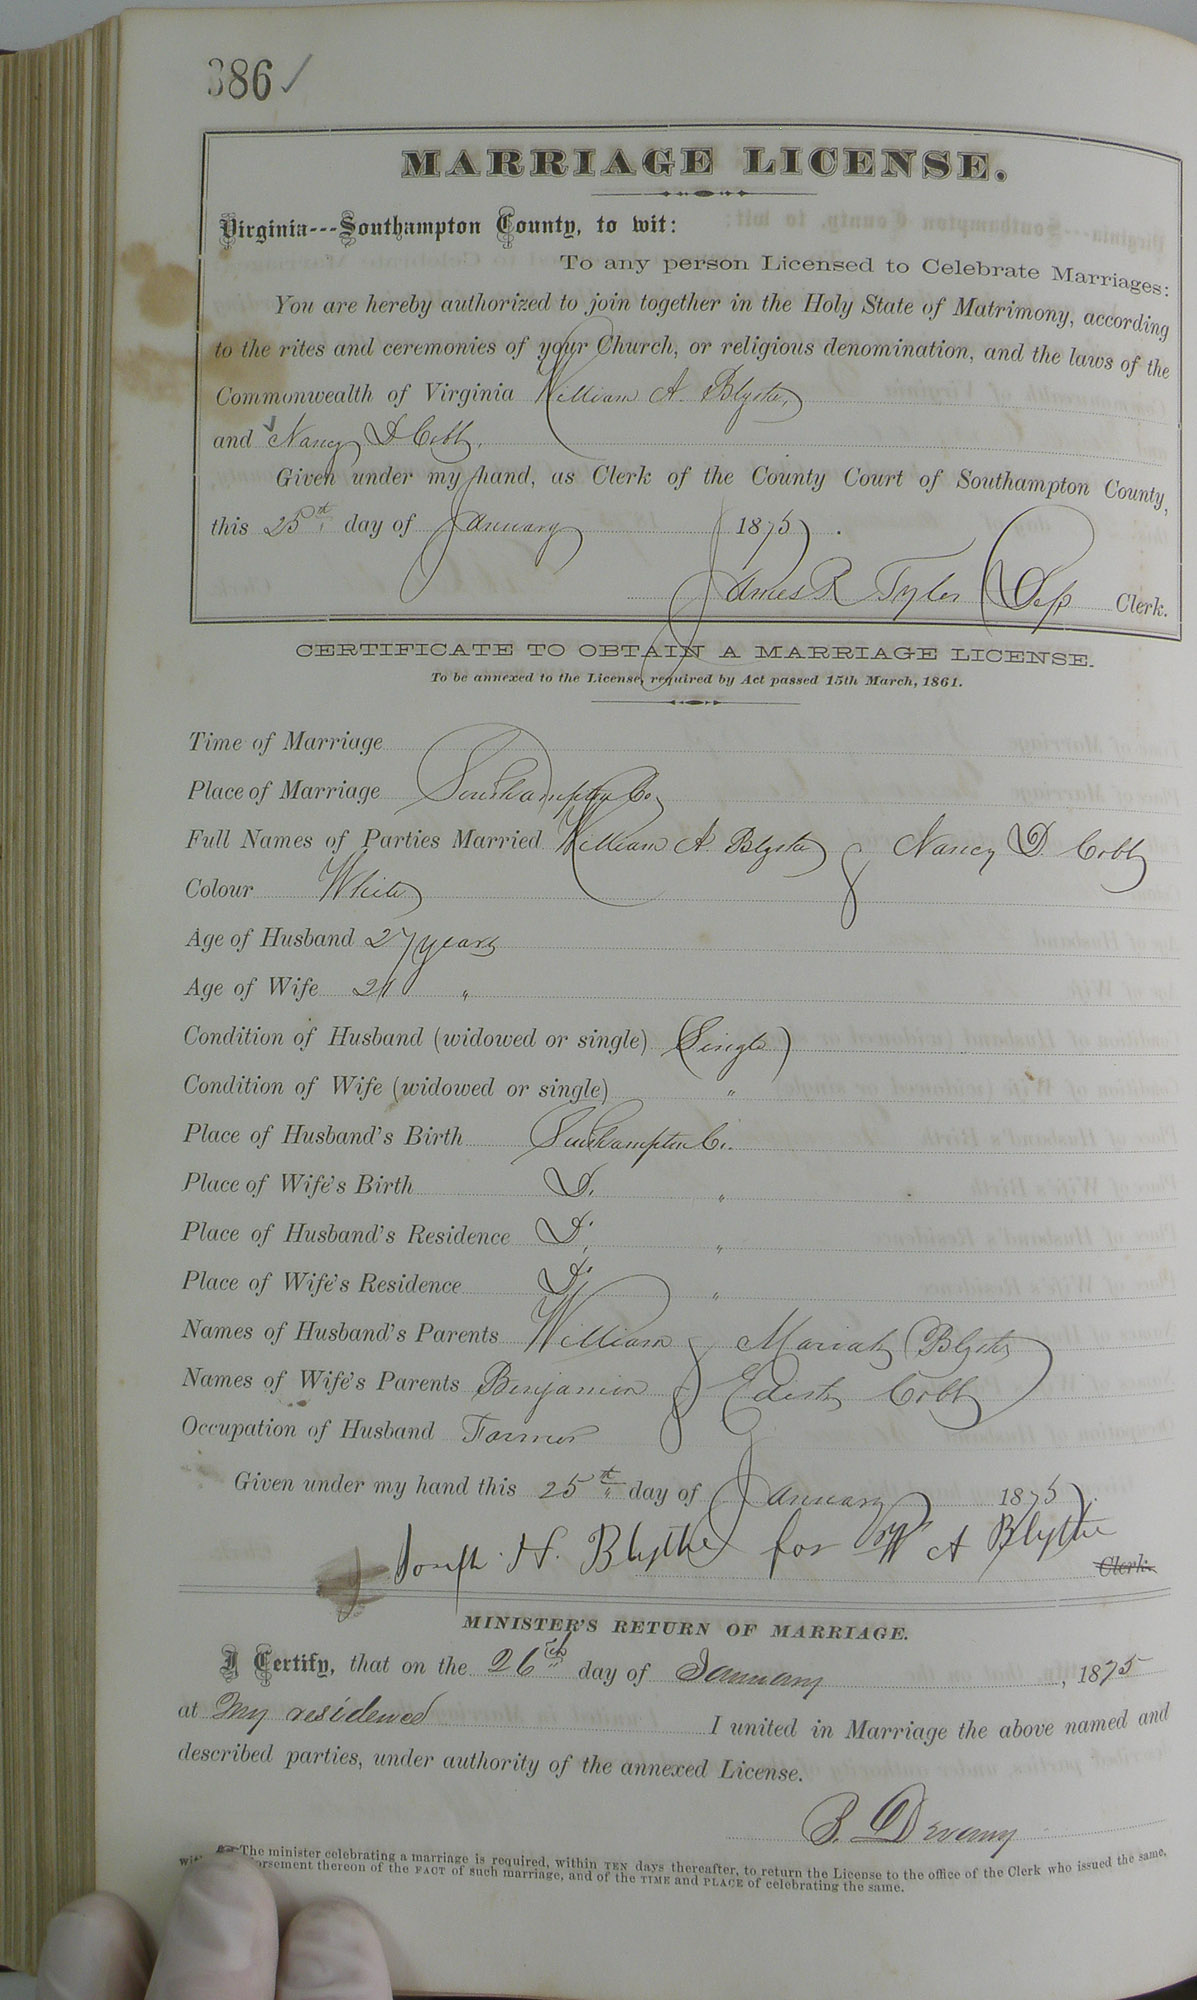 386 ✓
MARRIAGE LICENSE.
Virginia---Southampton County, to wit:
To any person Licensed to Celebrate Marriages:
You are hereby authorized to join together in the Holy State of Matrimony, according
to the rites and ceremonies of your Church, or religious denomination, and the laws of the
Commonwealth of Virginia William A. Blythe,
and Nancy D Cobb,
Given under my hand, as Clerk of the County Court of Southampton County,
this 25th day of January 1875.
James R Tyler Dep Clerk.
CERTIFICATE TO OBTAIN A MARRIAGE LICENSE.
To be annexed to the License, required by Act passed 15th March, 1861.
Time of Marriage
Place of Marriage Southampton Co,
Full Names of Parties Married William A Blythe & Nancy D. Cobb
Colour White
Age of Husband 27 years
Age of Wife 21 "
Condition of Husband (widowed or single) Single
Condition of Wife (widowed or single) "
Place of Husband's Birth Southampton Co.
Place of Wife's Birth D. "
Place of Husband's Residence D. "
Place of Wife's Residence D. "
Names of Husband's Parents William & Mariah Blythe
Names of Wife's Parents Benjamin & Edith Cobb
Occupation of Husband Farmer
Given under my hand this 25th day of January 1875.
Joseph H. Blythe for W A Blythe
Clerk.
MINISTER'S RETURN OF MARRIAGE.
I Certify, that on the 26th day of January, 1875
at My residence I united in Marriage the above named and
described parties, under authority of the annexed License.
The minister celebrating a marriage is required, within TEN days thereafter, to return the License to the office of the Clerk who issued the same,
thereon of the FACT of such marriage, and of the TIME and PLACE of celebrating the same.